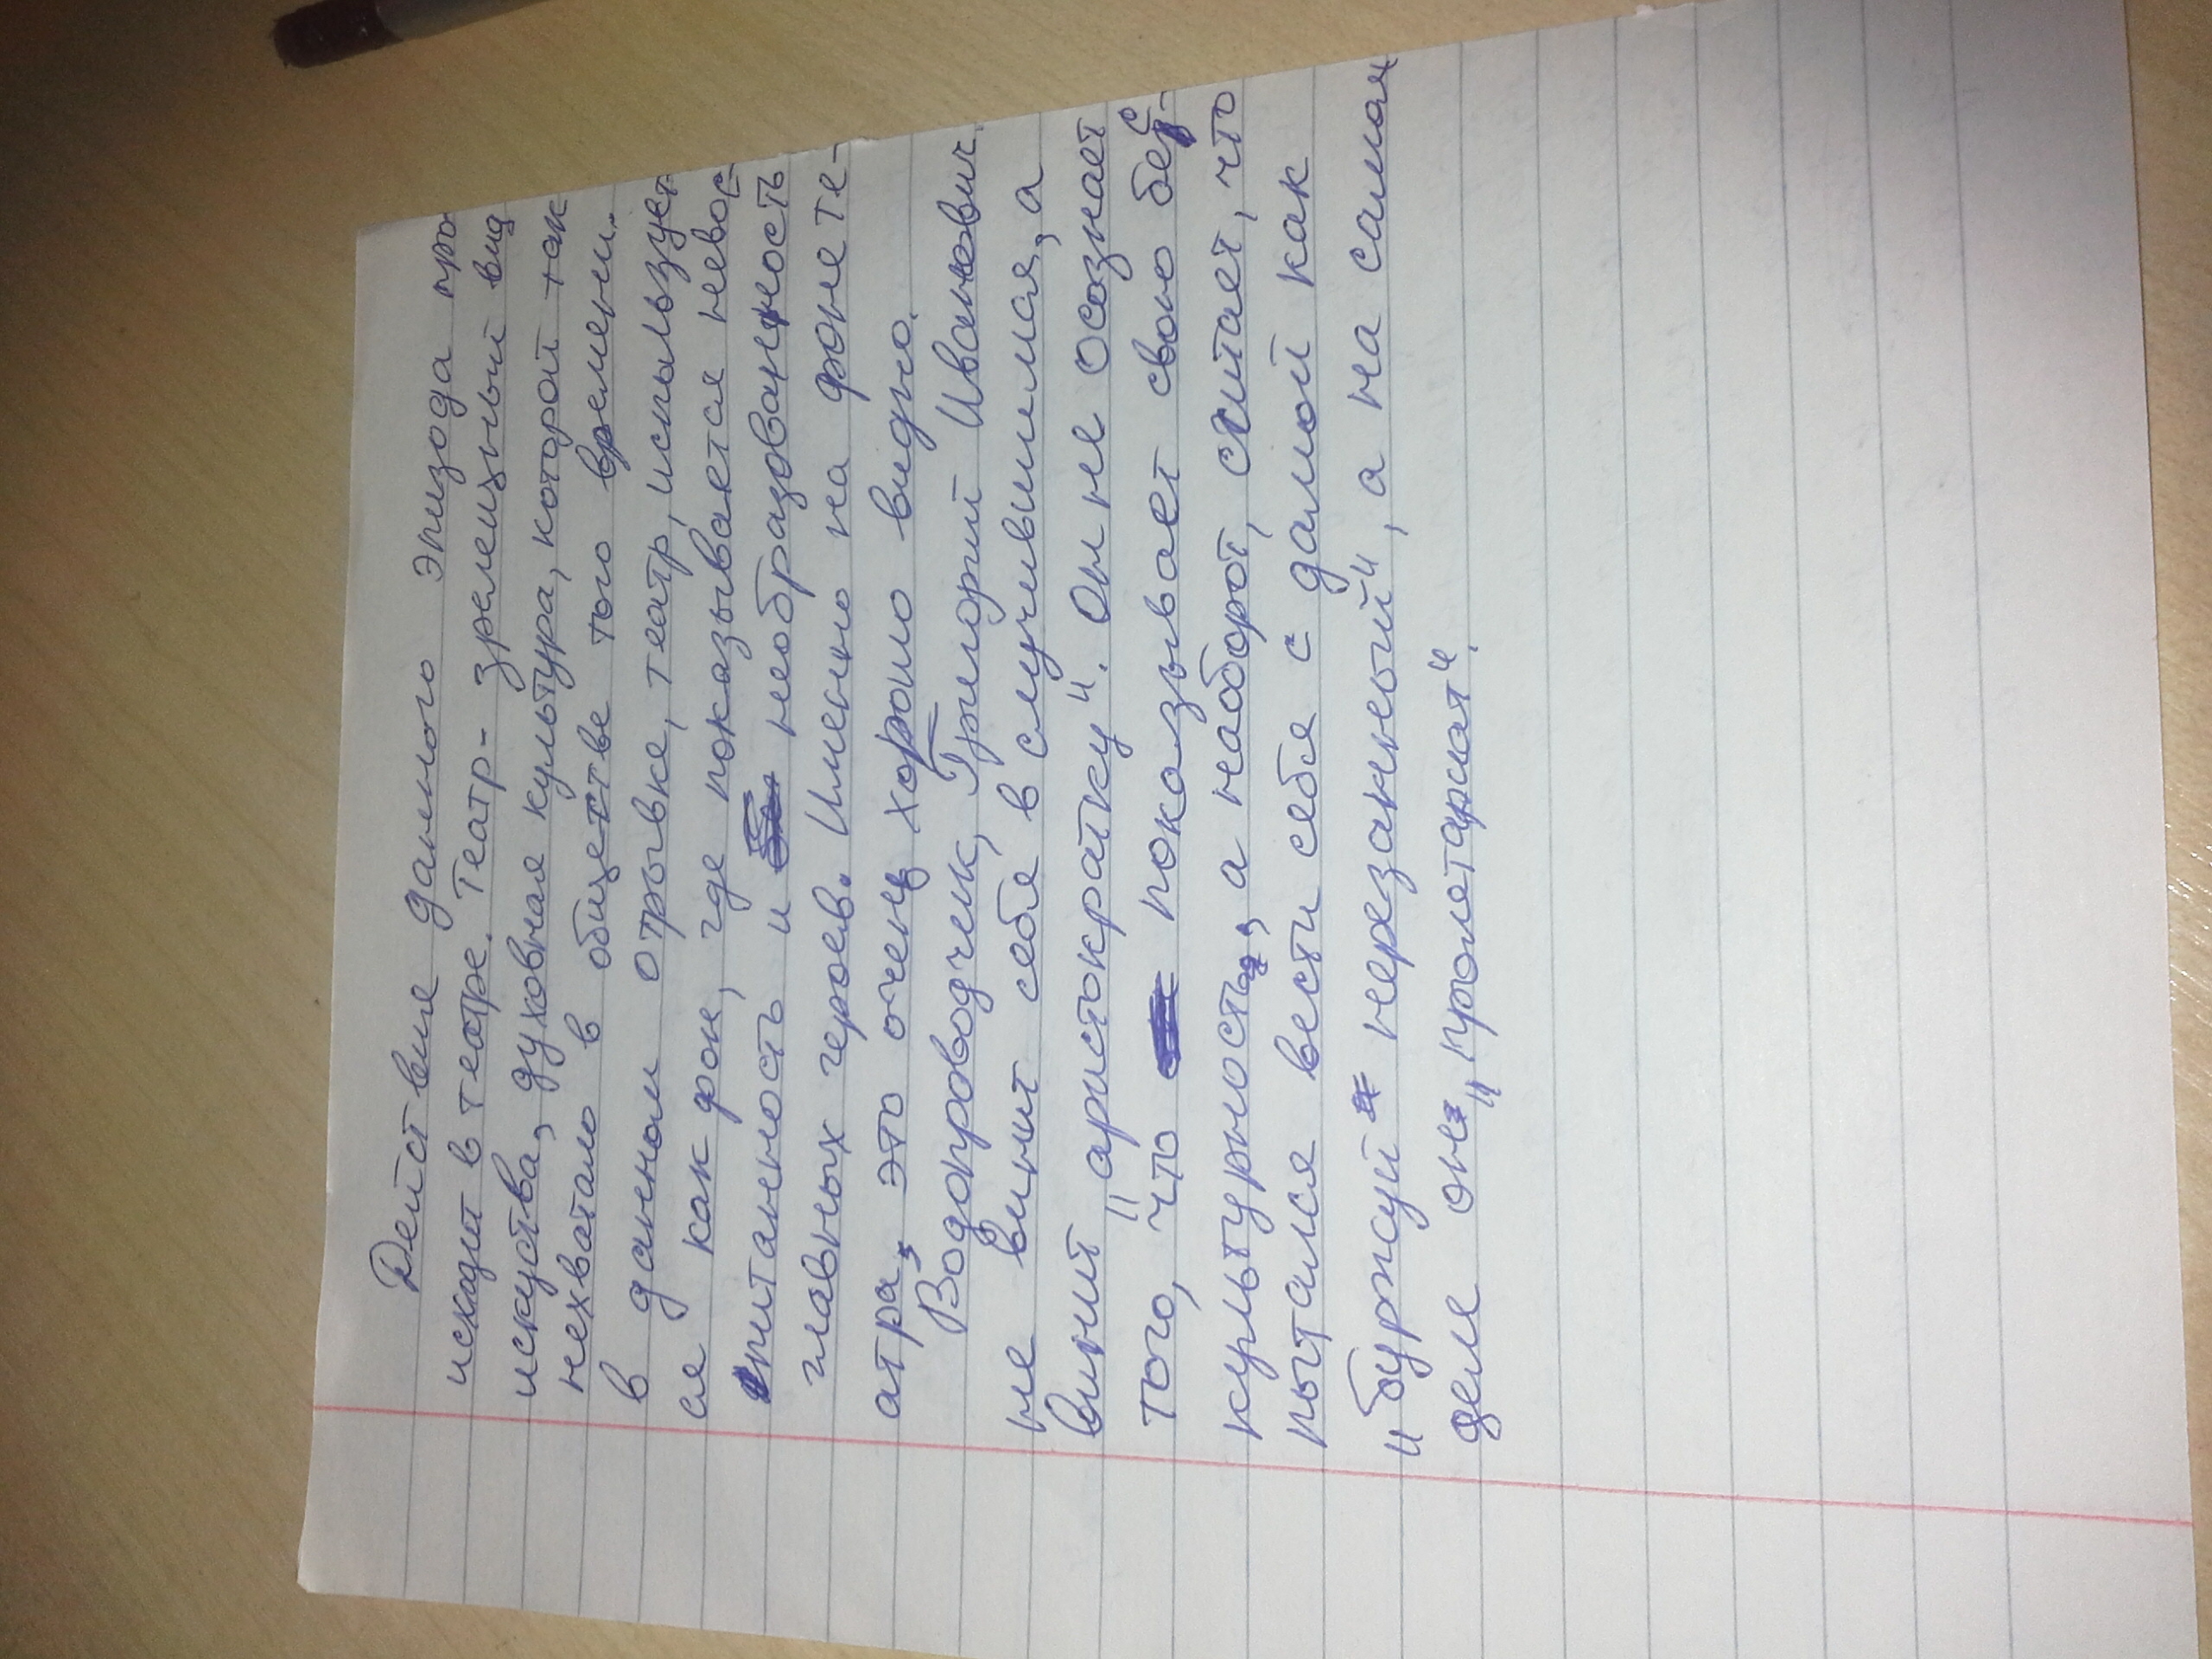 Действие данного эпизода про
исходит в театре. Театр - зрелещный вид
искуства, духовная культура, которой так
нехватало в общесттве того времени.
в данном отрывке, театр, используеет
ся как фон, где показывается невос-
питанность и необразованность
главных героев. Именно на фоне те-
атра, это очень хорошо видно.
Водопроводчек, Григорий Иванович
не винит себя в случившимся, а
винит "аристократку". Он не осознает
того, что показывает свою бес-
культурность, а наоборот, считает, что
пытался вести себя с дамой как
"буржуй нерезанный", а на самом
деле он "пролетариат".